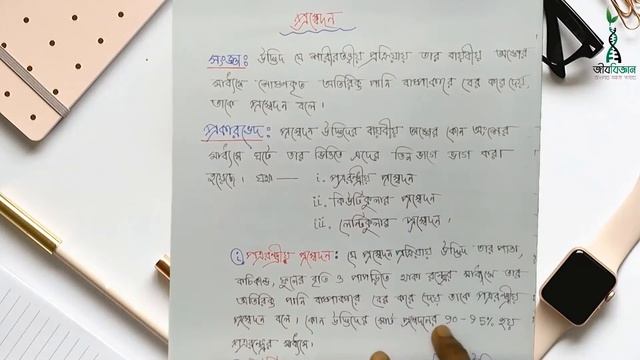 প্রস্বেদন
সংজ্ঞা: উদ্ভিদ যে শারীরতত্ত্বীয় প্রক্রিয়ায় তার বায়বীয় অঙ্গের
মাধ্যমে শোষণকৃত অতিরিক্ত পানি বাষ্পাকারে বের করে দেয়,
তাকে প্রস্বেদন বলে।
প্রকারভেদ: প্রস্বেদন উদ্ভিদের বায়বীয় অঙ্গের কোন অংশের
মাধ্যমে ঘটে তার ভিত্তিতে এদের তিন ভাগে ভাগ করা
হয়েছে। যথা —— i. পত্ররন্ধ্রীয় প্রস্বেদন
ii. কিউটিকুলার প্রস্বেদন
iii. লেন্টিকুলার প্রস্বেদন।
i পত্ররন্ধ্রীয় প্রস্বেদন: যে প্রস্বেদন প্রক্রিয়ায় উদ্ভিদ তার পাতা,
কচিকান্ড, ফুলের বৃতি ও পাপড়িতে থাকা রন্ধ্রের মাধ্যমে তার
অতিরিক্ত পানি বাষ্পাকারে বের করে দেয় তাকে পত্ররন্ধ্রীয়
প্রস্বেদন বলে। কোন উদ্ভিদের মোট প্রস্বেদনের 90-95% হয়
পত্ররন্ধ্রের মাধ্যমে।
জীববিজ্ঞান